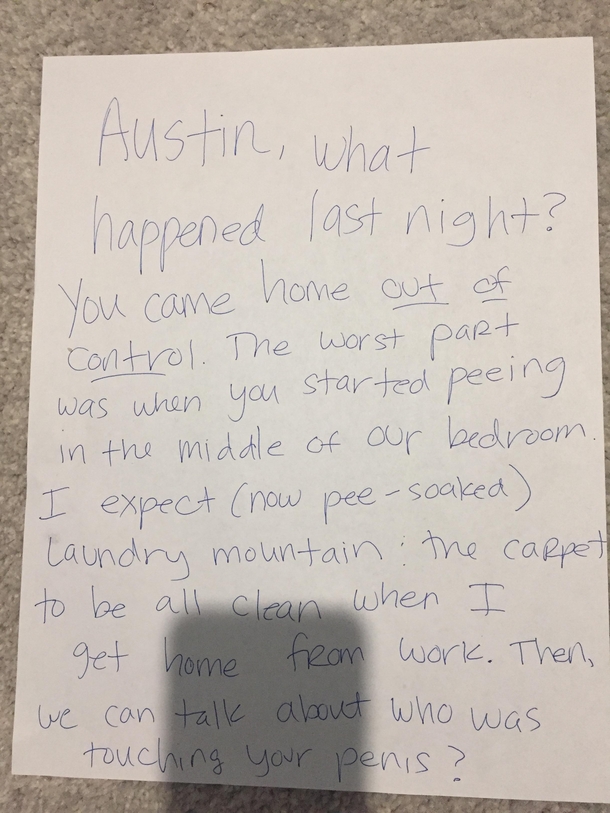 Austin, what
happened last night?
You came home out of
control. The worst part
was when you started peeing
in the middle of our bedroom.
I expect (now pee-soaked)
laundry mountain : the carpet
to be all clean when I
get home from work. Then,
we can talk about who was
touching your penis?